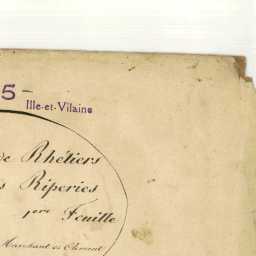 5
Ille-et-Vilaine
de Rhétiers
s Riperies
1ère Feuille
Marchant et Clement